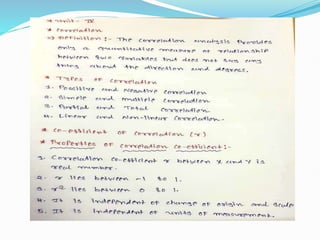 * Unit - IV
* Correlation
⇒ Definition :- The correlation analysis provides
only a quantitative measure of relationship
between two variables but does not say any
thing about the direction and degrees.
* Types of Correlation
1. Positive and Negative correlation
2. Simple and Multiple Correlation
3. Partial and Total Correlation
4. Linear and Non-linear Correlation.
* Co-efficient of Correlation (r)
* Properties of Correlation Co-efficient :-
1. Correlation Co-efficient r between x and y is
real number.
2. r lies between -1 to 1.
3. r² lies between 0 to 1.
4. It is Independent of change of origin and scale
5. It is Independent of units of measurement.